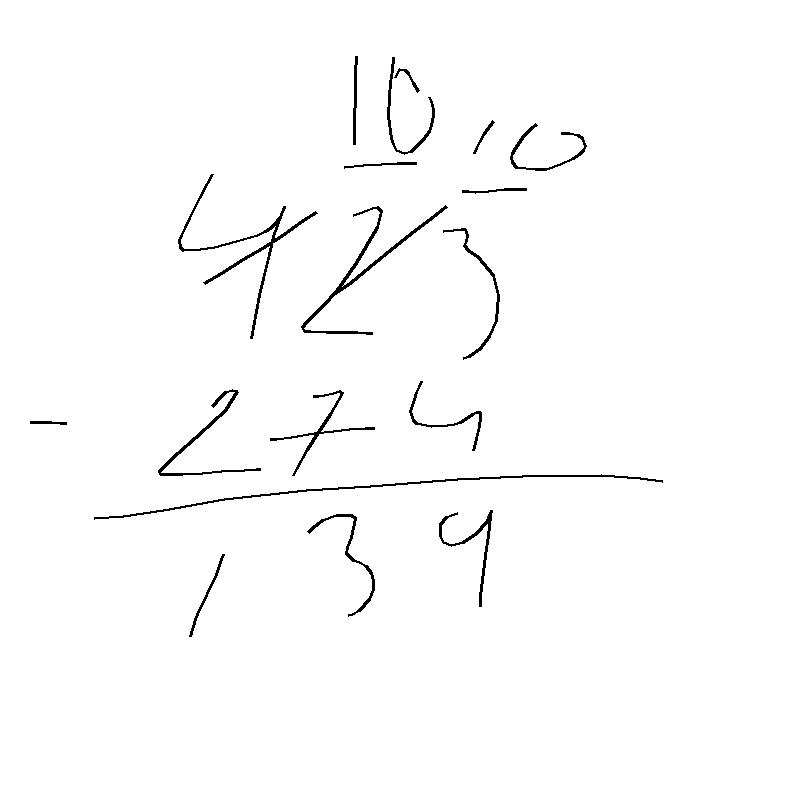 10 10
423
- 274
139